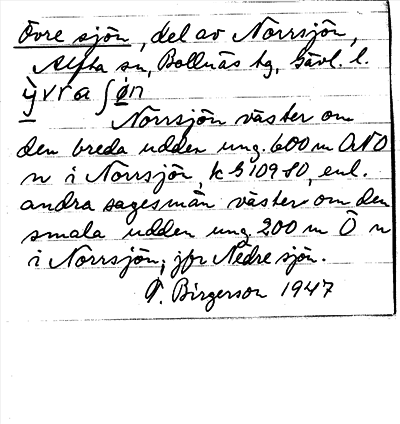 Övre sjön, del av Norrsjön,
Alfta sn, Bollnäs tg, Gävl. l.
ỳvra ʃøn
Norrsjön väster om
den breda udden ung. 600 m ONO
n i Norrsjön, k 51098 0, enl.
andra sagesmän väster om den
smala udden ung. 200 m Ö n
i Norrsjön; jfr Nedre sjön.
Birgerson 1947